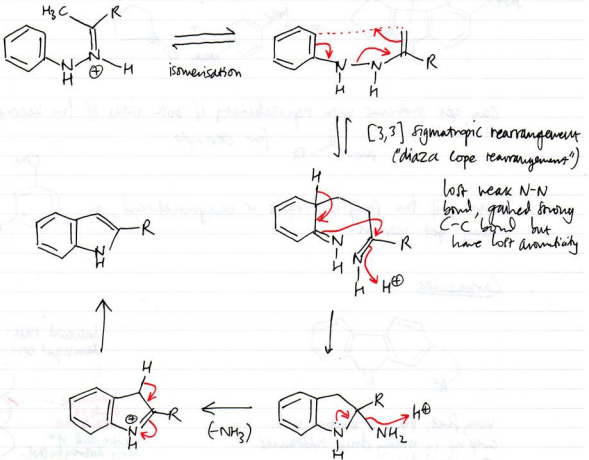 H₃C R
N N ⊕ H
H
isomerisation
N N R
H H
[3,3] sigmatropic rearrangement
("diaza cope rearrangement")
lost weak N-N
bond, gained strong
C-C bond but
have lost aromaticity
H
N R
H N
H H⊕
R
N
H
H
R
⊕ N
H
(-NH₃)
R H⊕
N NH₂
H